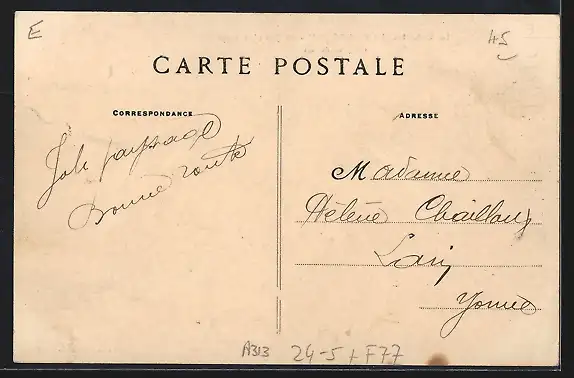 E
45
CARTE POSTALE
CORRESPONDANCE
ADRESSE
Joli paysage
Bonne route
Madame
Hélène Chaillou
Yonne
A313 24-5 + F77